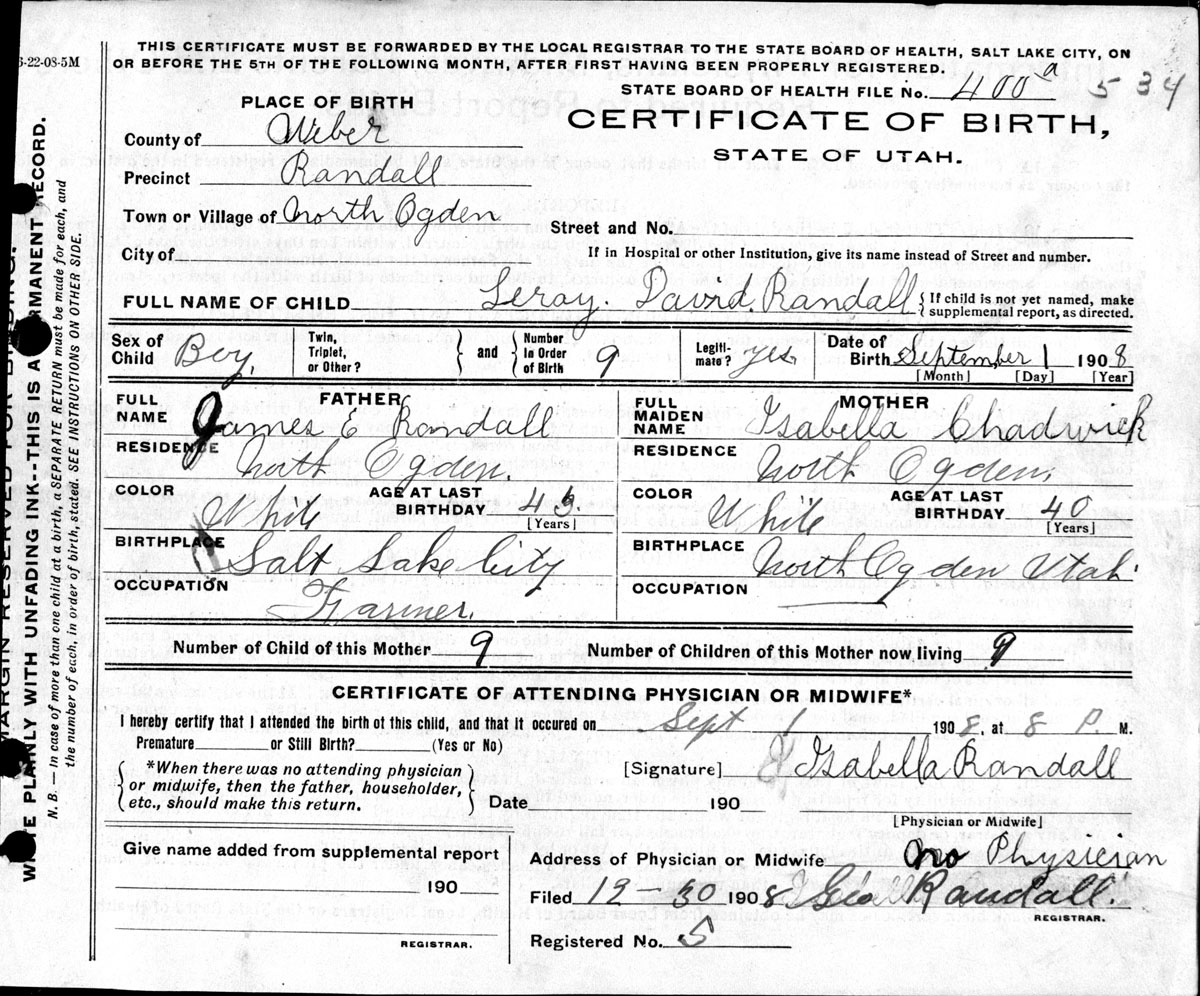 THIS CERTIFICATE MUST BE FORWARDED BY THE LOCAL REGISTRAR TO THE STATE BOARD OF HEALTH, SALT LAKE CITY, ON
OR BEFORE THE 5TH OF THE FOLLOWING MONTH, AFTER FIRST HAVING BEEN PROPERLY REGISTERED.
-22-08-5M
STATE BOARD OF HEALTH FILE No. 400 a 534
PLACE OF BIRTH
CERTIFICATE OF BIRTH,
STATE OF UTAH.
County of Weber
Precinct Randall
Town or Village of North Ogden
Street and No.
City of
If in Hospital or other Institution, give its name instead of Street and number.
FULL NAME OF CHILD Leroy. David. Randall { If child is not yet named, make supplemental report, as directed.
Sex of Child Boy, Twin, Triplet, or Other? } and { Number in Order of Birth 9 Legiti- mate? yes. Date of Birth September 1 1908
[Month] [Day] [Year]
FATHER
FULL NAME James E Randall
RESIDENCE North Ogden.
COLOR White AGE AT LAST BIRTHDAY 43.
[Years]
BIRTHPLACE Salt Lake City
OCCUPATION Farmer.
MOTHER
FULL MAIDEN NAME Isabella Chadwick
RESIDENCE North Ogden,
COLOR White AGE AT LAST BIRTHDAY 40
[Years]
BIRTHPLACE North Ogden Utah.
OCCUPATION
Number of Child of this Mother 9 Number of Children of this Mother now living 9
CERTIFICATE OF ATTENDING PHYSICIAN OR MIDWIFE*
I hereby certify that I attended the birth of this child, and that it occured on Sept 1908, at 8 P. M.
Premature or Still Birth? (Yes or No)
{ *When there was no attending physician
or midwife, then the father, householder,
etc., should make this return. }
[Signature] Isabella Randall
Date 190
[Physician or Midwife]
Give name added from supplemental report
190
REGISTRAR.
Address of Physician or Midwife no Physician
Filed 12-30 1908 Randall.
REGISTRAR.
Registered No. 5
MARGIN RESERVED FOR BINDING.
WRITE PLAINLY WITH UNFADING INK--THIS IS A PERMANENT RECORD.
N. B. — In case of more than one child at a birth, a SEPARATE RETURN must be made for each, and
the number of each, in order of birth, stated. SEE INSTRUCTIONS ON OTHER SIDE.